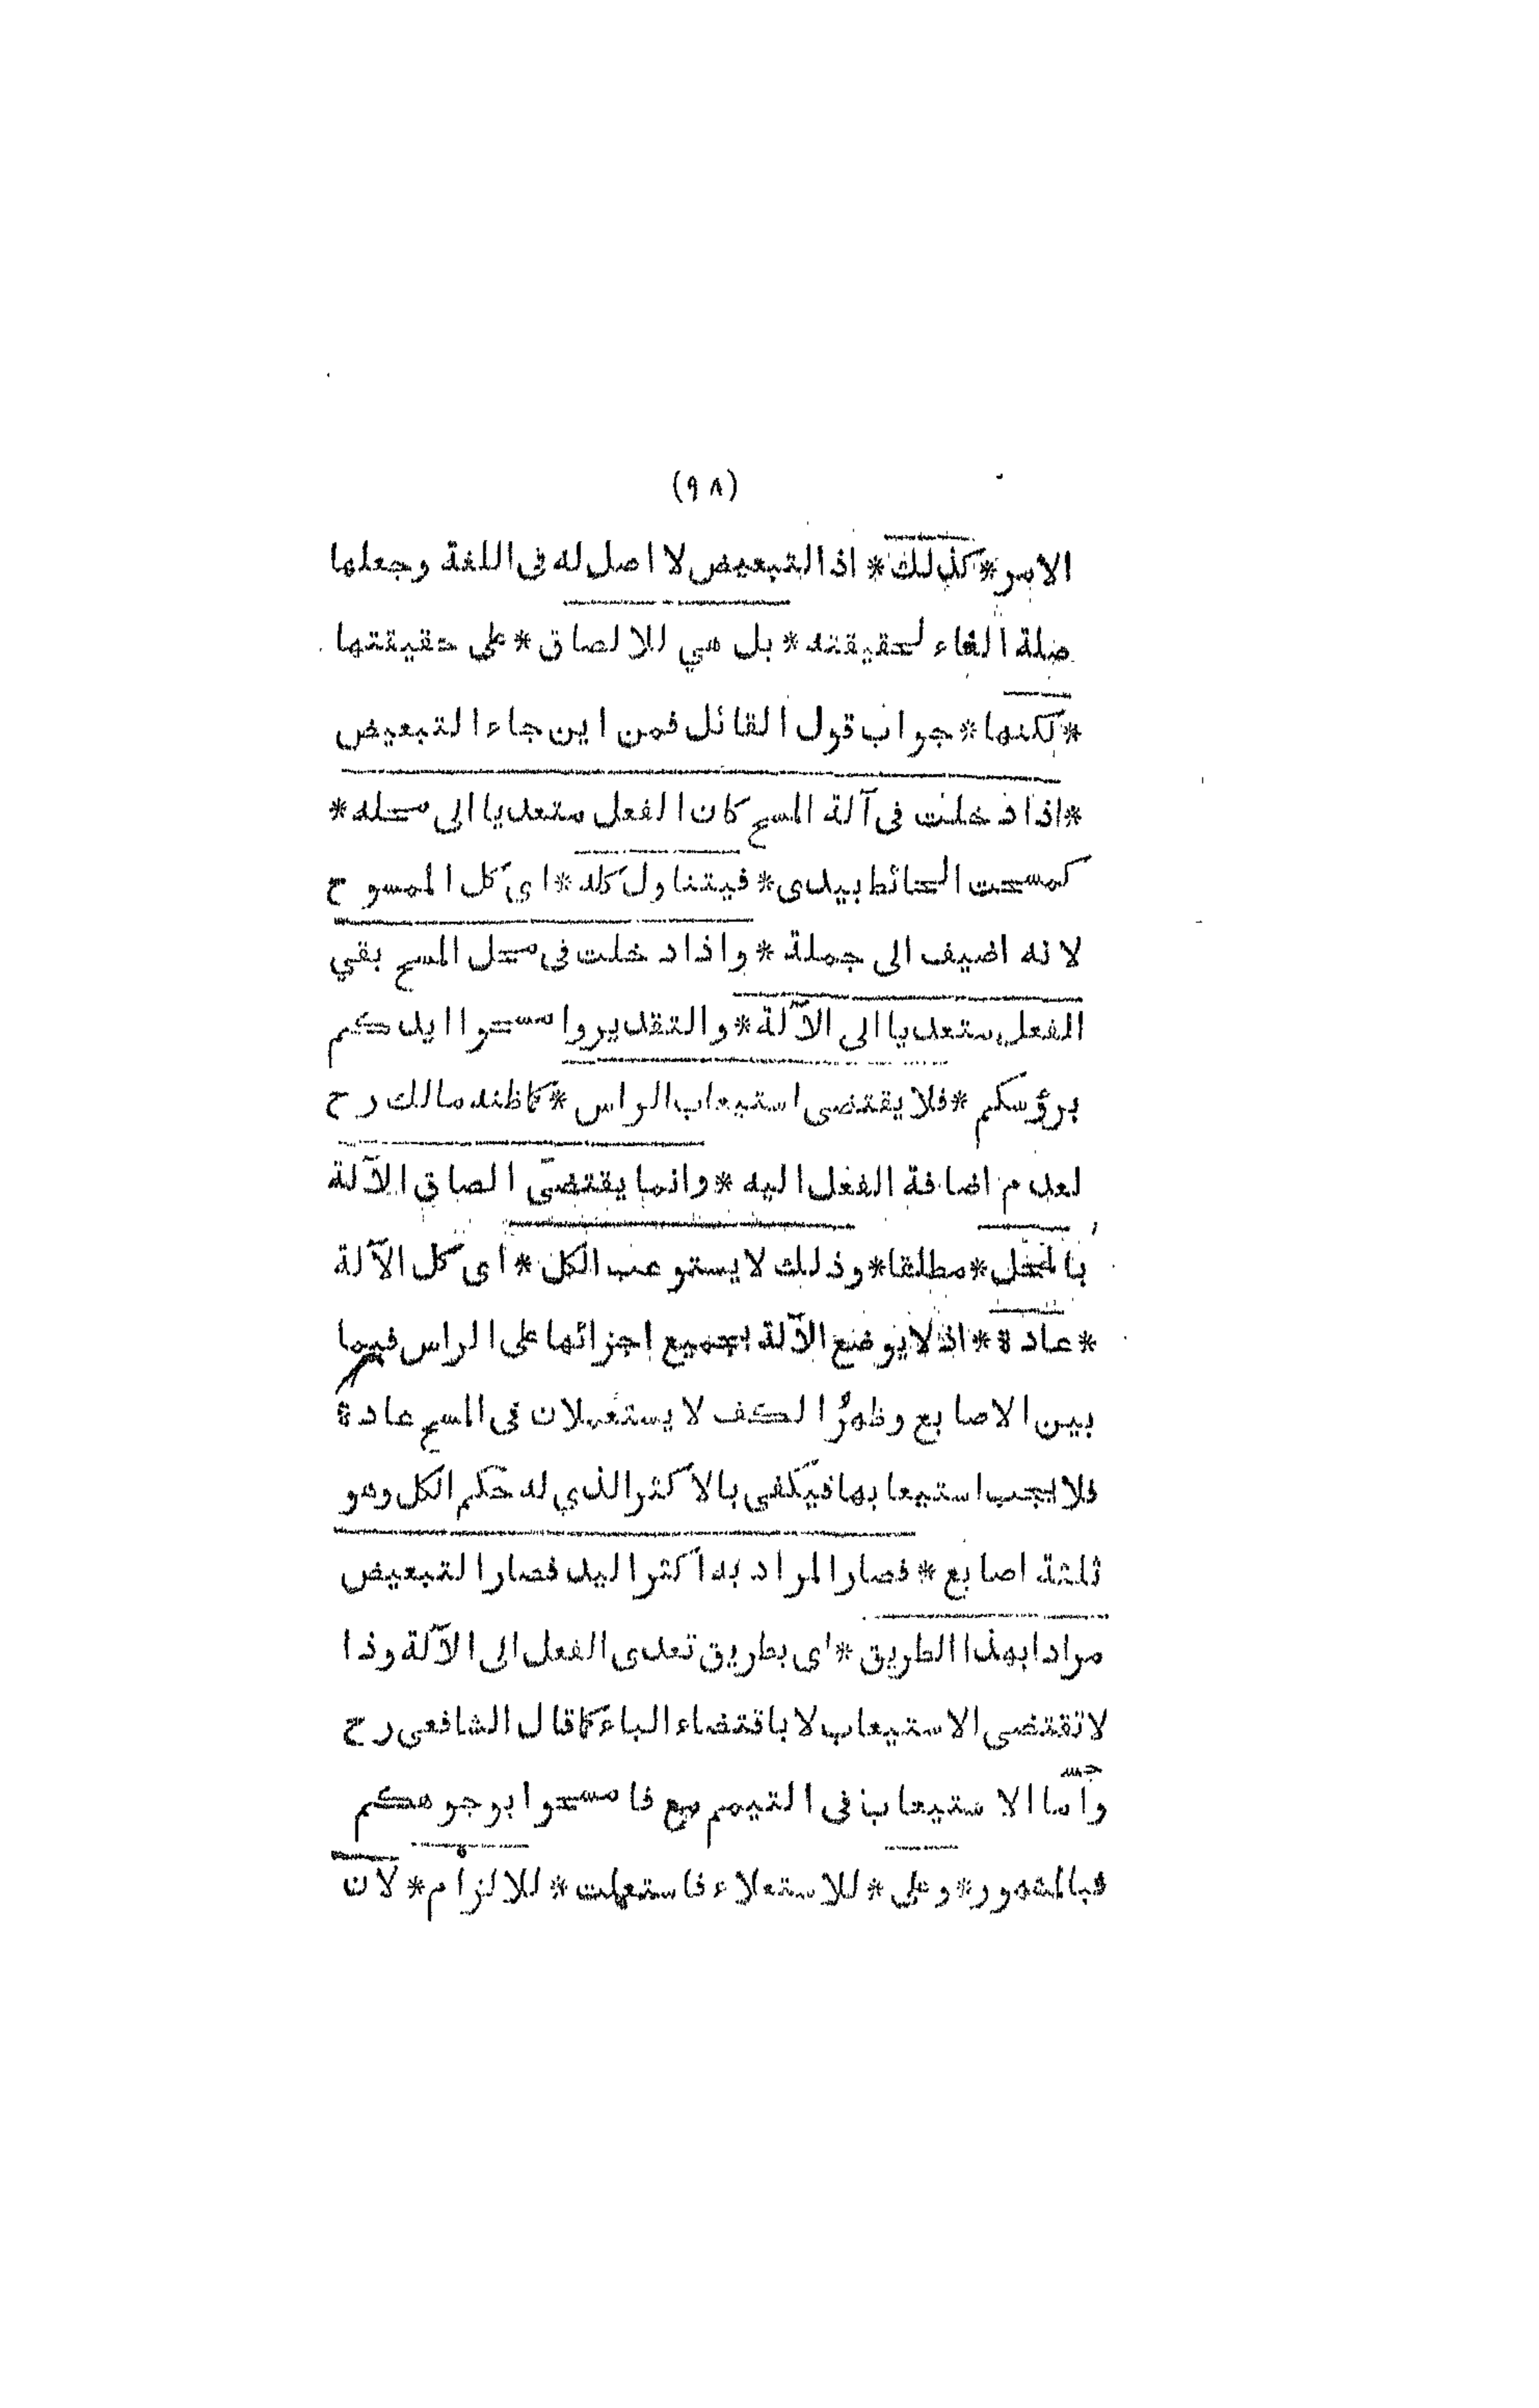 (٩٨)
الامر*كذلك* اذ التبعيض لا اصل له فى اللغة وجعلها
صلة الغاء لحقيقته* بل هي للالصاق* على حقيقتها
*لكنها* جواب قول القائل فمن اين جاء التبعيض
*اذا دخلت فى آلة المسح كان الفعل متعديا الى محله*
كمسحت الحائط بيدى* فيتناول كله* اي كل الممسوح
لانه اضيف الى جملة* واذا دخلت فى محل المسح بقي
الفعل متعديا الى الآلة* والتقدير وامسحوا ايديكم
برؤسكم* فلا يقتضى استيعاب الراس* كما ظنه مالك رح
لعدم اضافة الفعل اليه* وانما يقتضى الصاق الآلة
بالمحل* مطلقا* وذلك لا يستوعب الكل* اى كل الآلة
*عادة* اذ لا يوضع الآلة بجميع اجزائها على الراس فيما
بين الاصابع وظهر الكف لا يستعملان فى المسح عادة
فلا يجب استيعابها فيكفى بالاكثر الذي له حكم الكل وهو
ثلثة اصابع* فصار المراد به اكثر اليد فصار التبعيض
مرادا بهذا الطريق* اى بطريق تعدى الفعل الى الآلة وذا
لا تقتضى الاستيعاب لا باقتضاء الباء كما قال الشافعى رح
واما الاستيعاب فى التيمم مع فامسحوا بوجوهكم
فبالمشهور* وعلى* للاستعلاء فاستعملت* للالزام* لان